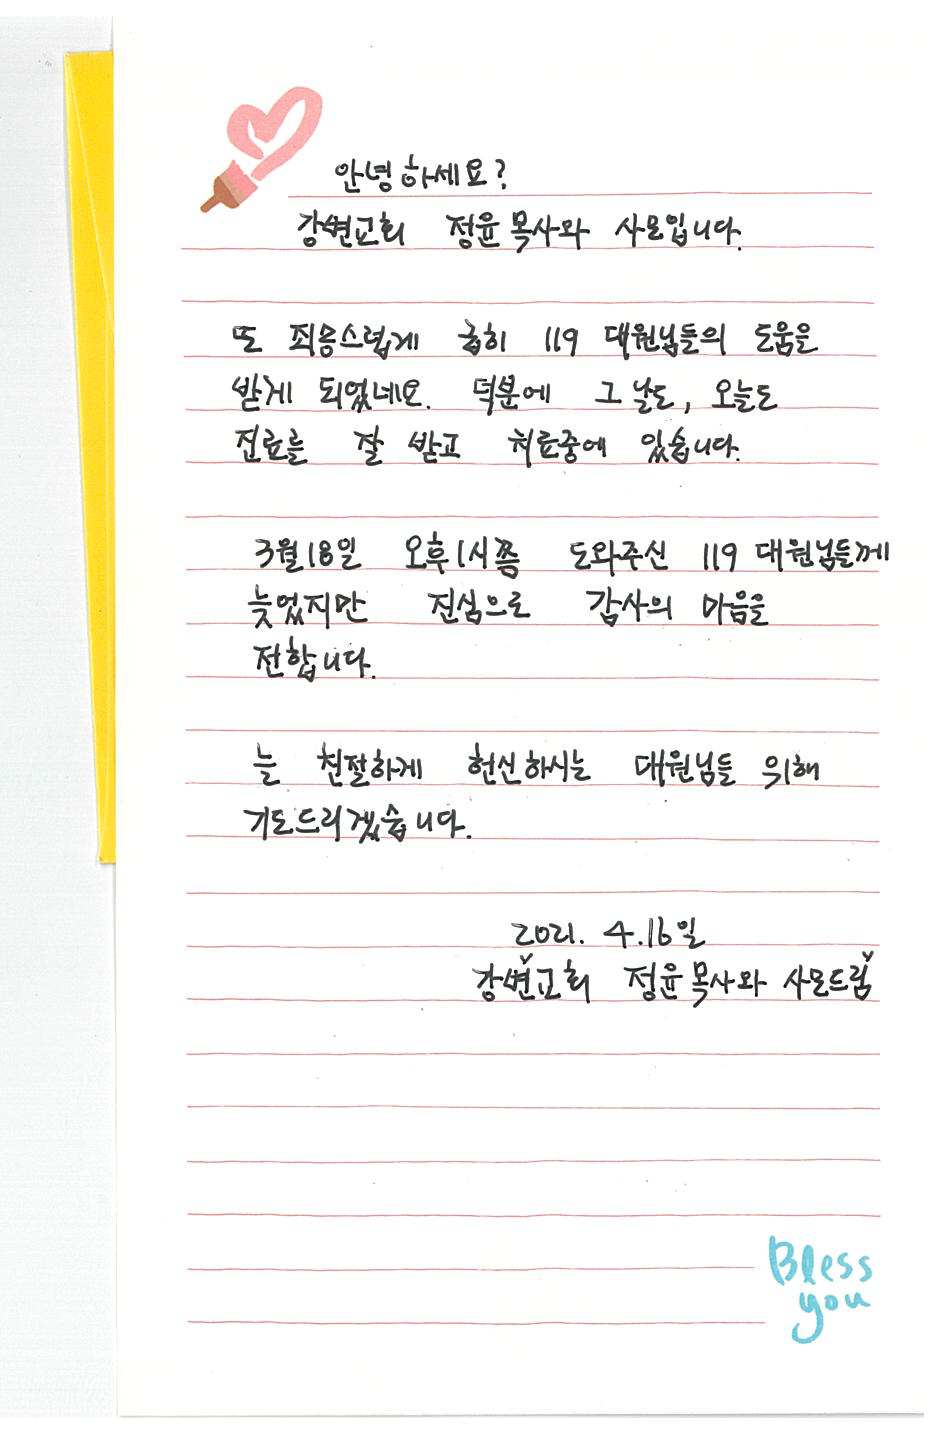 안녕하세요?
강변교회 정윤 목사와 사모입니다.
또 죄송스럽게 급히 119 대원님들의 도움을
받게 되었네요. 덕분에 그날도, 오늘도
진료를 잘 받고 치료중에 있습니다.
3월18일 오후1시쯤 도와주신 119 대원님들께
늦었지만 진심으로 감사의 마음을
전합니다.
늘 친절하게 헌신하시는 대원님들 위해
기도드리겠습니다.
2021. 4.16일
강변교회 정윤 목사와 사모드림
Bless
you